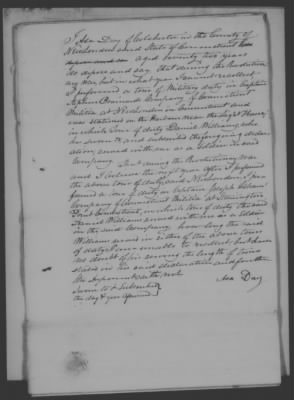 I Asa Day of Colchester in the County of
and State of Connecticut
aged seventy two years
do depose and say that during the Revolution
ary war, but in what year I cannot recollect
I performed a tour of Military duty in Captain
Company of Connecticut
Militia at in Connecticut and
was stationed on the near the Light House,
in which tour of duty Daniel Williams, who
has and subscribed the foregoing declar
ation, served with me as a soldier in said
Company. during the Revolutionary war
and I believe the next year after I performed
the above tour of duty, I per
formed a tour of duty in Captain Joseph
Company of Connecticut Militia at Stonington
Point Connecticut, in which tour of duty the said
Daniel Williams served with me as a soldier
in the said Company, how long the said
Williams served in either of the above tours
of duty I am unable to recollect but have
no doubt of his serving the length of time
stated in his said declaration and further
the deponent saith not.
Sworn to & Subscribed
the day & year aforesaid
Asa Day